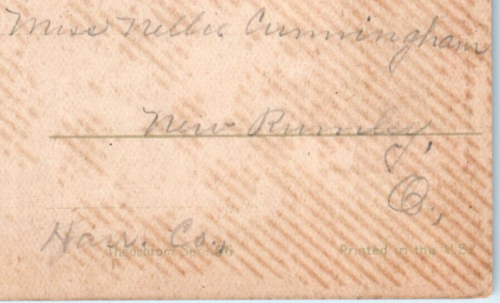 Miss Nellie Cunningham
New Rumley,
O.,
Harr. Co.,
Theochrom Printed in the U.S.